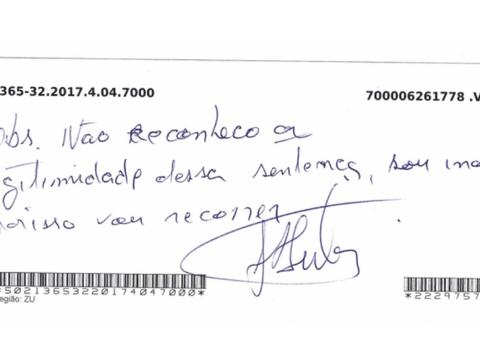 365-32.2017.4.04.7000 700006261778 .V
obs. Nao Reconheco a
gitimidade dessa sentença, sou ino
orisso vou recorrer
*50213653220174047000* *2229757
egião: ZU